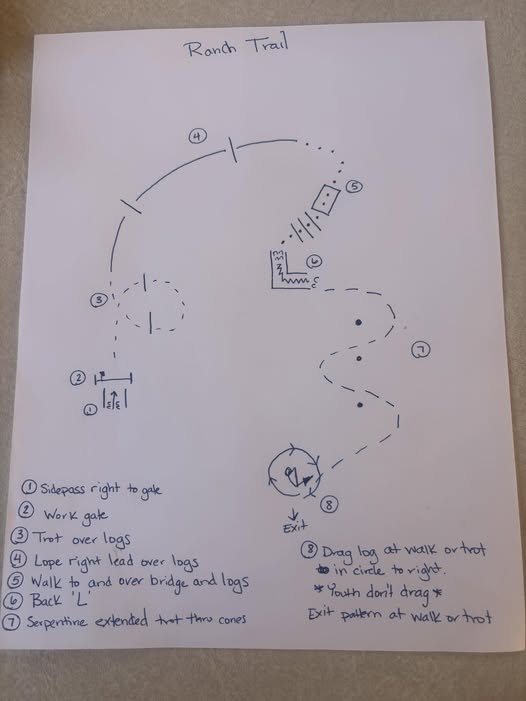 Ranch Trail
④
⑤
⑥
③
⑦
②
①
⑧
Exit
① Sidepass right to gate
② Work gate
③ Trot over logs
④ Lope right lead over logs
⑤ Walk to and over bridge and logs
⑥ Back 'L'
⑦ Serpentine extended trot thru cones
⑧ Drag log at walk or trot
in circle to right.
*Youth don't drag*
Exit pattern at walk or trot